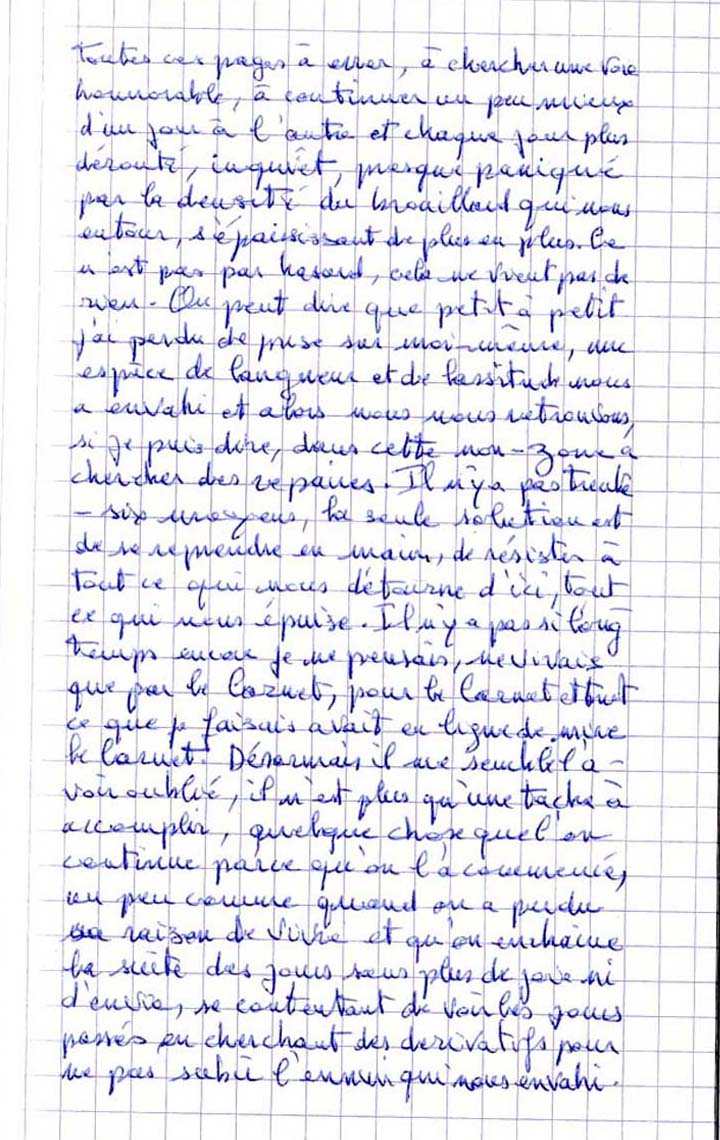 toutes ces pages à errer, à chercher une voie
honnorable, à continuer un peu mieux
d'un jour à l'autre et chaque jour plus
dérouté, inquiet, presque paniqué
par la densité du brouillard qui nous
entour, s'épaississant de plus en plus. Ce
n'est pas par hasard, cela ne vient pas de
rien. On peut dire que petit à petit
j'ai perdu de prise sur moi-même, une
espèce de langueur et de lassitude nous
a envahi et alors nous nous retrouvons,
si je puis dire, dans cette non-zone à
chercher des repaires. Il n'y a pas trente
-six moyens, la seule solution est
de se reprendre en main, de résister à
tout ce qui nous détourne d'ici, tout
ce qui nous épuise. Il n'y a pas si long
temps encore je ne pensais, ne vivais
que par le carnet, pour le carnet et tout
ce que je faisais avait en ligne de mire
le carnet. Désormais il me semble l'a-
voir oublié, il n'est plus qu'une tache à
accomplir, quelque chose que l'on
continue parce qu'on l'a commencé,
un peu comme quand on a perdu
sa raison de vivre et qu'on enchaine
la suite des jours sans plus de joie ni
d'envie, se contentant de voir les jours
passés en cherchant des derivatifs pour
ne pas subir l'ennui qui nous envahi.